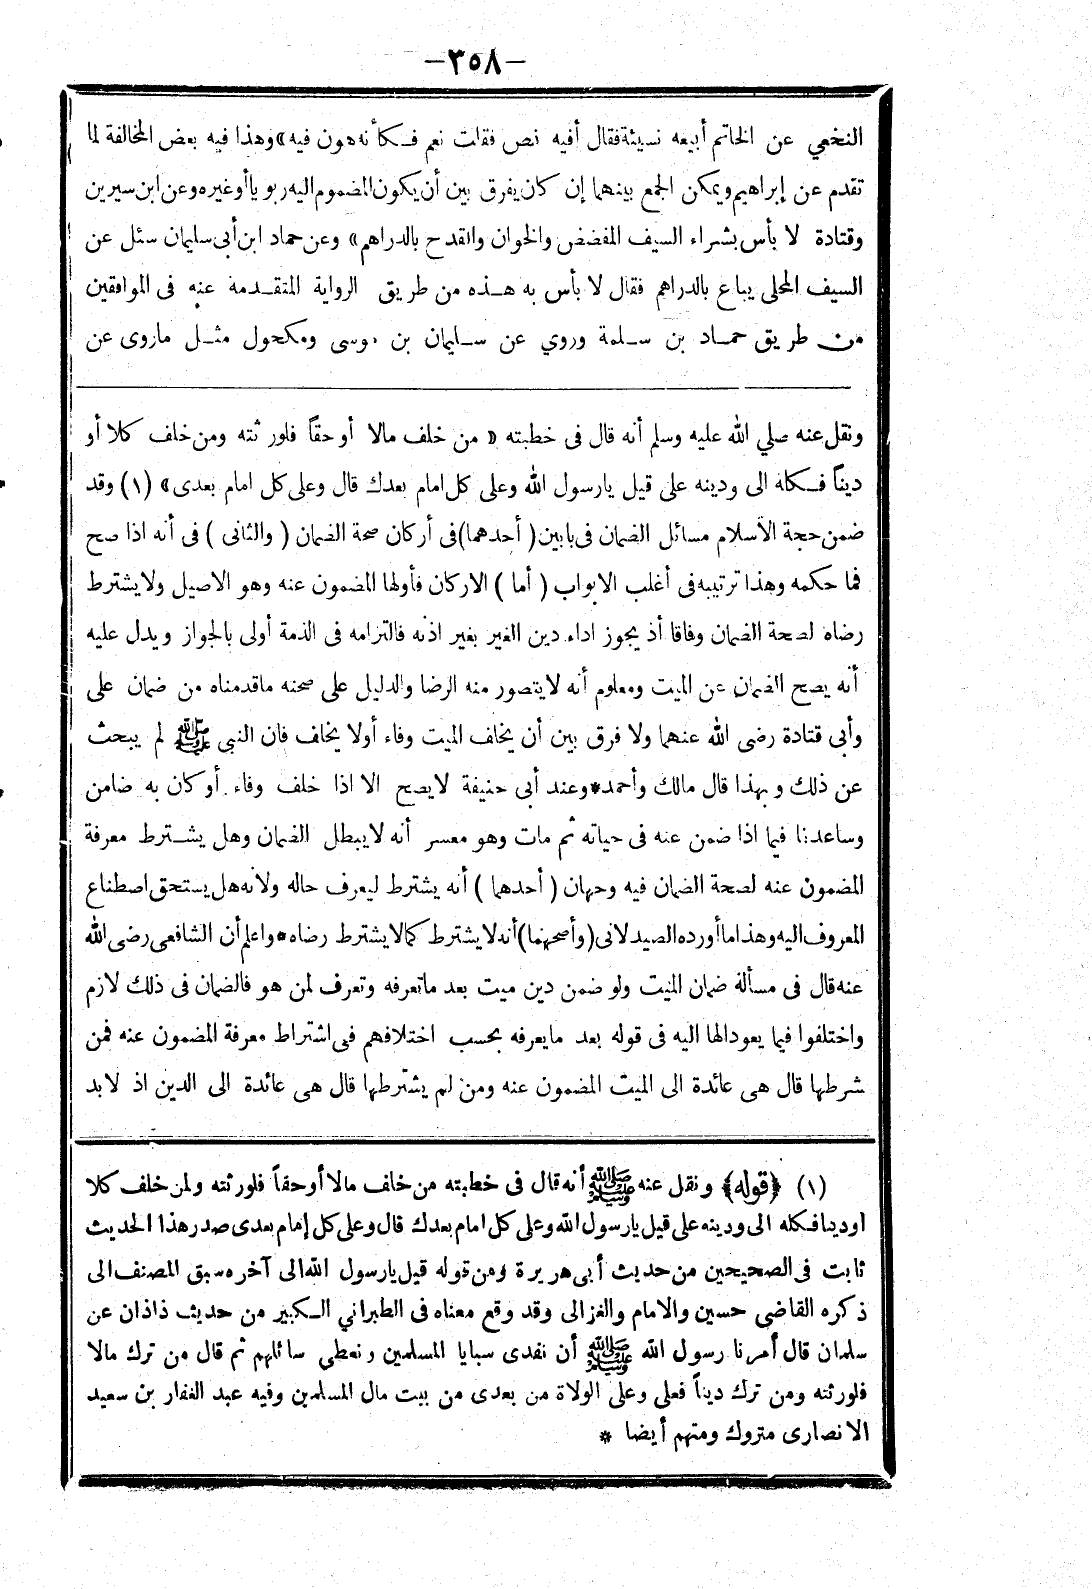 -٣٥٨-
النخعي عن الخاتم أبيعه نسيئة فقال أفيه فص فقلت نعم فكأنه هون فيه» وهذا فيه بعض المخالفة لما
تقدم عن إبراهيم ويمكن الجمع بينهما إن كان يفرق بين أن يكون المضموم اليه ربويا أو غيره وعن ابن سيرين
وقتادة لا بأس بشراء السيف المفضض والخوان والقدح بالدراهم» وعن حماد ابن أبى سليمان سئل عن
السيف المحلى يباع بالدراهم فقال لا بأس به هذه من طريق الرواية المتقدمة عنه فى الموافقين
من طريق حماد بن سلمة وروي عن سليمان بن موسى ومكحول مثل ماروى عن
ونقل عنه صلي الله عليه وسلم أنه قال فى خطبته « من خلف مالا أو حقاً فلورثته ومن خلف كلا أو
ديناً فكله الى ودينه على قيل يارسول الله وعلى كل امام بعدك قال وعلى كل امام بعدى» (١) وقد
ضمن حجة الأسلام مسائل الضمان فى بابين (أحدهما) فى أركان صحة الضمان (والثانى) فى أنه اذا صح
فما حكمه وهذا ترتيبه فى أغلب الابواب (أما) الاركان فأولها المضمون عنه وهو الاصيل ولا يشترط
رضاه لصحة الضمان وفاقا أذ يجوز اداء دين الغير بغير اذنه فالتزامه فى الذمة أولى بالجواز ويدل عليه
أنه يصح الضمان عن الميت ومعلوم أنه لا يتصور منه الرضا والدليل على صحته ماقدمناه من ضمان على
وأبى قتادة رضى الله عنهما ولا فرق بين أن يخلف الميت وفاء أولا يخلف فان النبى ﷺ لم يبحث
عن ذلك وبهذا قال مالك وأحمد* وعند أبى حنيفة لا يصح الا اذا خلف وفاء. أو كان به ضامن
وساعدنا فيما اذا ضمن عنه فى حياته ثم مات وهو معسر أنه لا يبطل الضمان وهل يشترط معرفة
المضمون عنه لصحة الضمان فيه وجهان (أحدهما) أنه يشترط ليعرف حاله ولانه هل يستحق اصطناع
المعروف اليه وهذا ما أورده الصيدلانى (وأصحهما) أنه لا يشترط كما لا يشترط رضاه* واعلم أن الشافعى رضى الله
عنه قال فى مسألة ضمان الميت ولو ضمن دين ميت بعد ماتعرفه وتعرف لمن هو فالضمان فى ذلك لازم
واختلفوا فيما يعود الها اليه فى قوله بعد مايعرفه بحسب اختلافهم فى اشتراط معرفة المضمون عنه فمن
شرطها قال هى عائدة الى الميت المضمون عنه ومن لم يشترطها قال هى عائدة الى الدين اذ لابد
(١) ﴿قوله﴾ ونقل عنه ﷺ أنه قال فى خطبته من خلف مالا أو حقاً فلورثته ولمن خلف كلا
أودينا فكله الى ودينه على قيل يارسول الله وعلى كل امام بعدك قال وعلى كل إمام بعدى صدر هذا الحديث
ثابت فى الصحيحين من حديث أبى هريرة ومن قوله قيل يارسول الله الى آخره سبق المصنف الى
ذكره القاضى حسين والامام والغزالى وقد وقع معناه فى الطبراني الكبير من حديث ذاذان عن
سلمان قال أمرنا رسول الله ﷺ أن نفدى سبايا المسلمين ونعطي سائلهم ثم قال من ترك مالا
فلورثته ومن ترك ديناً فعلى وعلى الولاة من بعدى من بيت مال المسلمين وفيه عبد الغفار بن سعيد
الانصارى متروك ومتهم أيضا *